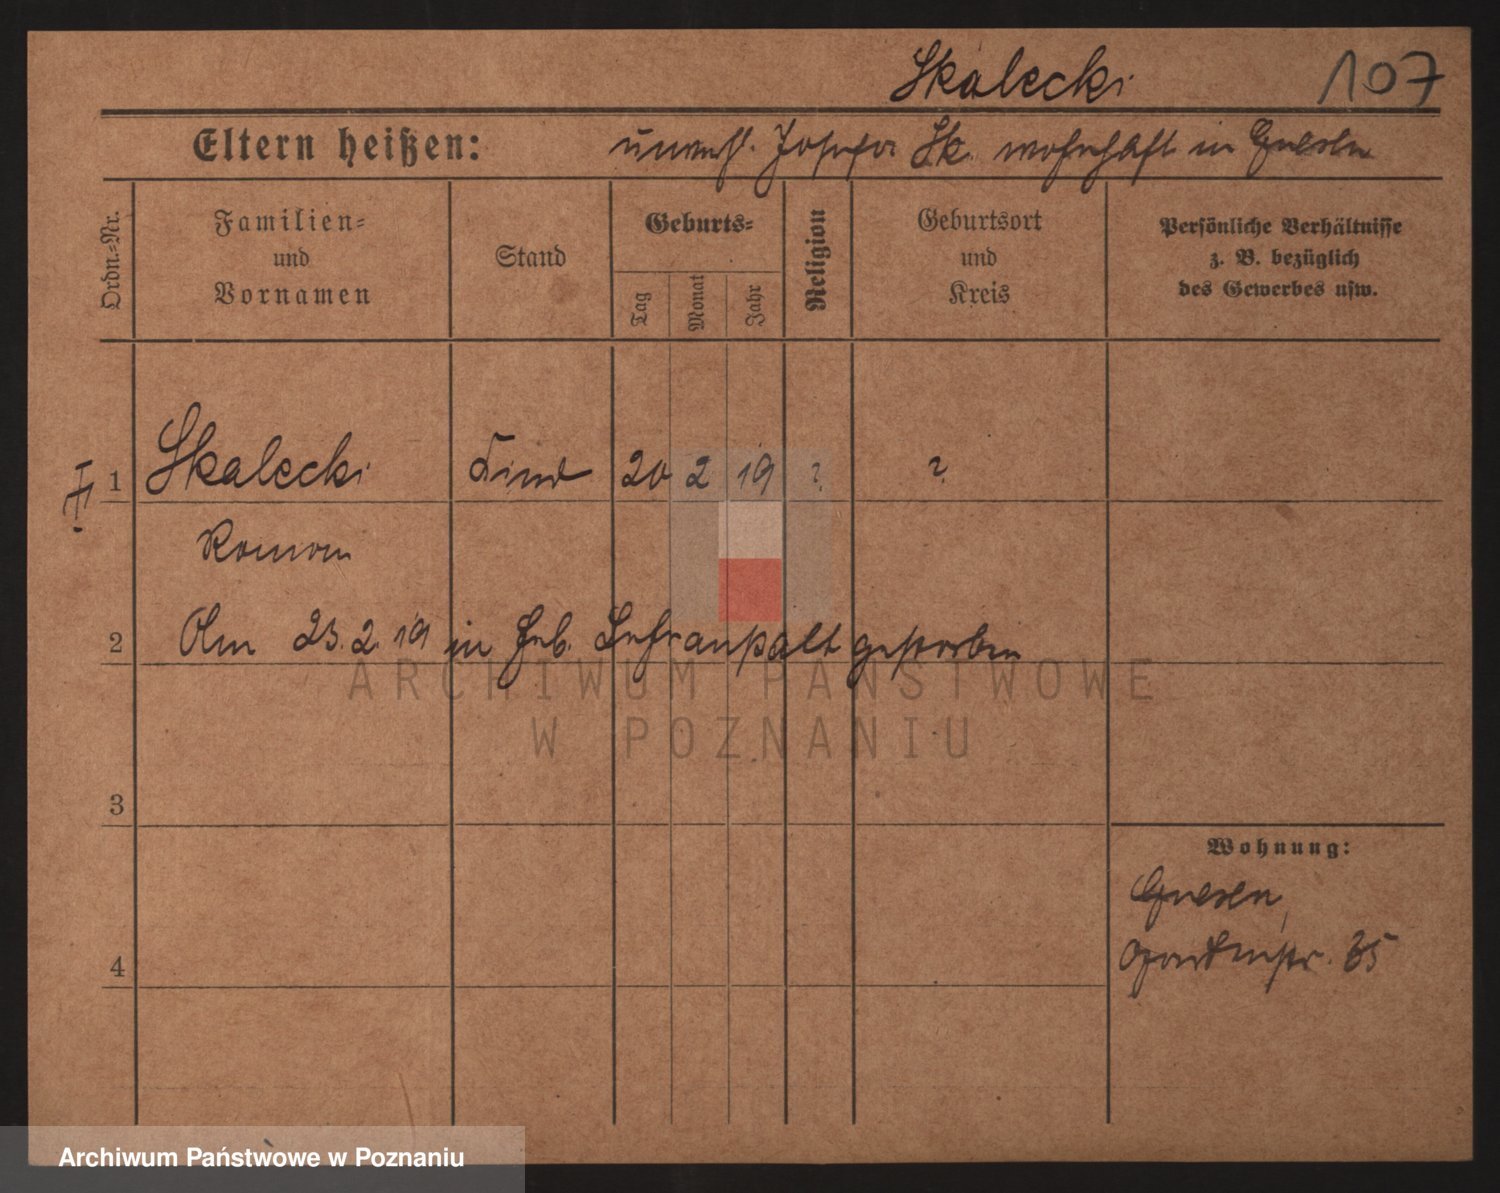 Skalecki 107
Eltern heißen: unverh. Josefa Sk. wohnhaft in Gnesen
Ordn.-Nr.
Familien-
und
Vornamen
Stand
Geburts-
Tag
Monat
Jahr
Religion
Geburtsort
und
Kreis
Persönliche Verhältnisse
z. B. bezüglich
des Gewerbes usw.
1 Skalecki Kind 20 2 19 ? ?
Roman
2 Am 23.2.19 in Heb. Lehranstalt gestorben
ARCHIWUM PAŃSTWOWE
W POZNANIU
3
Wohnung:
Gnesen,
4
35
Archiwum Państwowe w Poznaniu